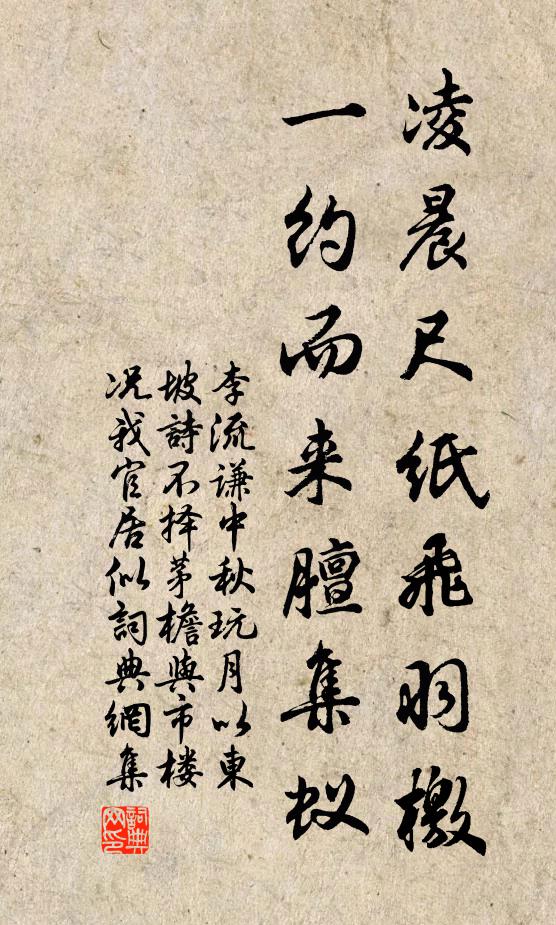 凌晨尺纸飛羽檄
一约而来膻集蚁
李流谦中秋玩月以東
坡詩不择茅檐與市楼
况我官居似詞典網集
詞典
网印